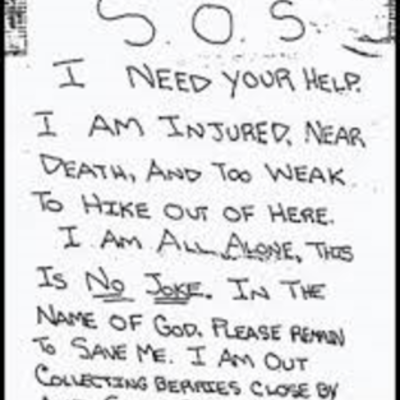 S.O.S
I NEED YOUR HELP.
I AM INJURED, NEAR
DEATH, AND TOO WEAK
TO HIKE OUT OF HERE.
I AM ALL ALONE, THIS
IS NO JOKE. IN THE
NAME OF GOD, PLEASE REMAIN
TO SAVE ME. I AM OUT
COLLECTING BERRIES CLOSE BY